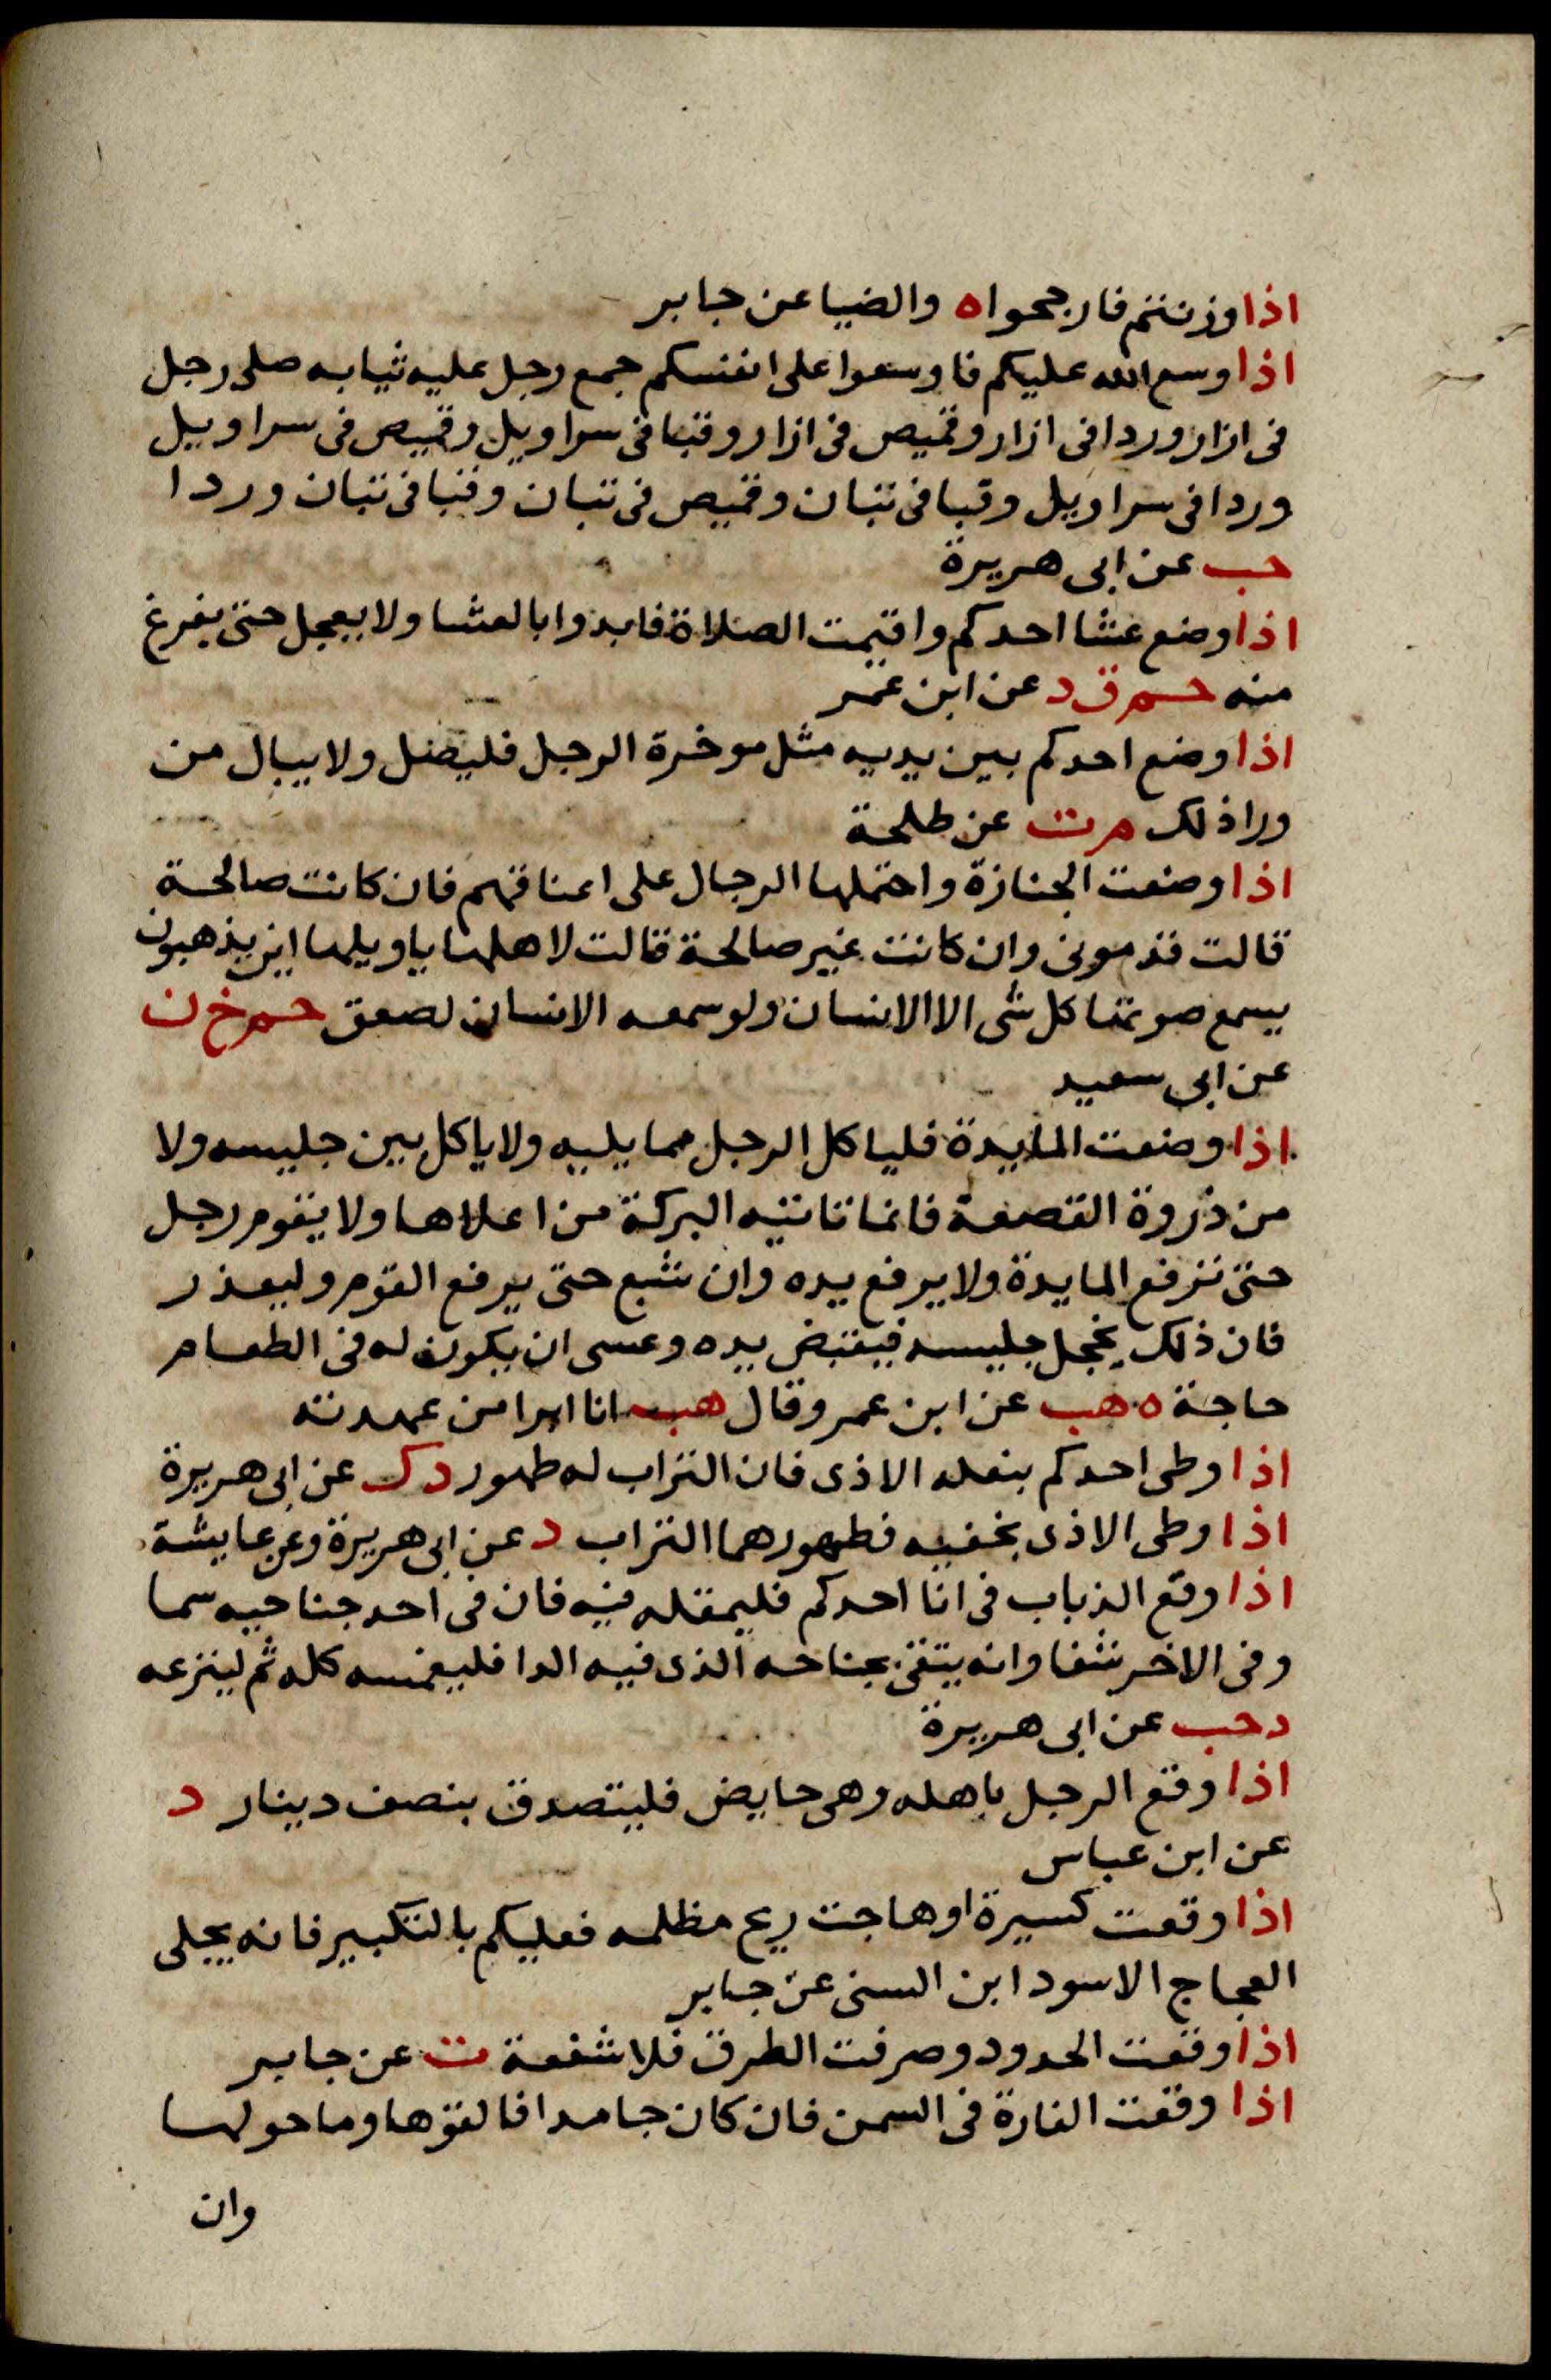 اذا وزنتم فارجحوا ه والضيا عن جابر
اذا وسع الله عليكم فاوسعوا على انفسكم جمع رجل عليه ثيابه صلى رجل
فى ازار وردا فى ازار وقميص فى ازار وقبا فى سراويل وقميص فى سراويل
وردا فى سراويل وقبا فى تبان وقميص فى تبان وقبا فى تبان وردا
حب عن ابى هريرة
اذا وضع عشا احدكم واقيمت الصلاة فابدوا بالعشا ولا يعجل حتى يفرغ
منه حم ق د عن ابن عمر
اذا وضع احدكم بين يديه مثل موخرة الرحل فليصل ولا يبال من
ورا ذلك م ت عن طلحة
اذا وضعت الجنازة واحتملها الرجال على اعناقهم فان كانت صالحة
قالت قدمونى وان كانت غير صالحة قالت لاهلها ياويلها اين يذهبون
يسمع صوتها كل شى الا الانسان ولو سمعه الانسان لصعق حم خ ن
عن ابى سعيد
اذا وضعت المايدة فلياكل الرجل مما يليه ولا ياكل بين جليسه ولا
من ذروة القصعة فانما تاتيه البركة من اعلاها ولا يقوم رجل
حتى ترفع المايدة ولا يرفع يده وان شبع حتى يرفع القوم وليعذر
فان ذلك يخجل جليسه فيقبض يده وعسى ان يكون له فى الطعام
حاجة ه هب عن ابن عمر وقال هب انا ابرا من عهدته
اذا وطى احدكم بنعله الاذى فان التراب له طهور د ك عن ابى هريرة
اذا وطى الاذى بخفيه فطهورهما التراب د عن ابى هريرة وعن عايشة
اذا وقع الذباب فى انا احدكم فليمقله فيه فان فى احد جناحيه سما
وفى الاخر شفا وانه يتقى بجناحه الذى فيه الدا فليغمسه كله ثم لينزعه
د حب عن ابى هريرة
اذا وقع الرجل باهله وهى حايض فليتصدق بنصف دينار د
عن ابن عباس
اذا وقعت كسيرة او هاجت ريح مظلمه فعليكم بالتكبير فانه يجلى
العجاج الاسود ابن السنى عن جابر
اذا وقعت الحدود وصرفت الطرق فلا شفعة ت عن جابر
اذا وقعت الفارة فى السمن فان كان جامدا فالقوها وما حولها
وان